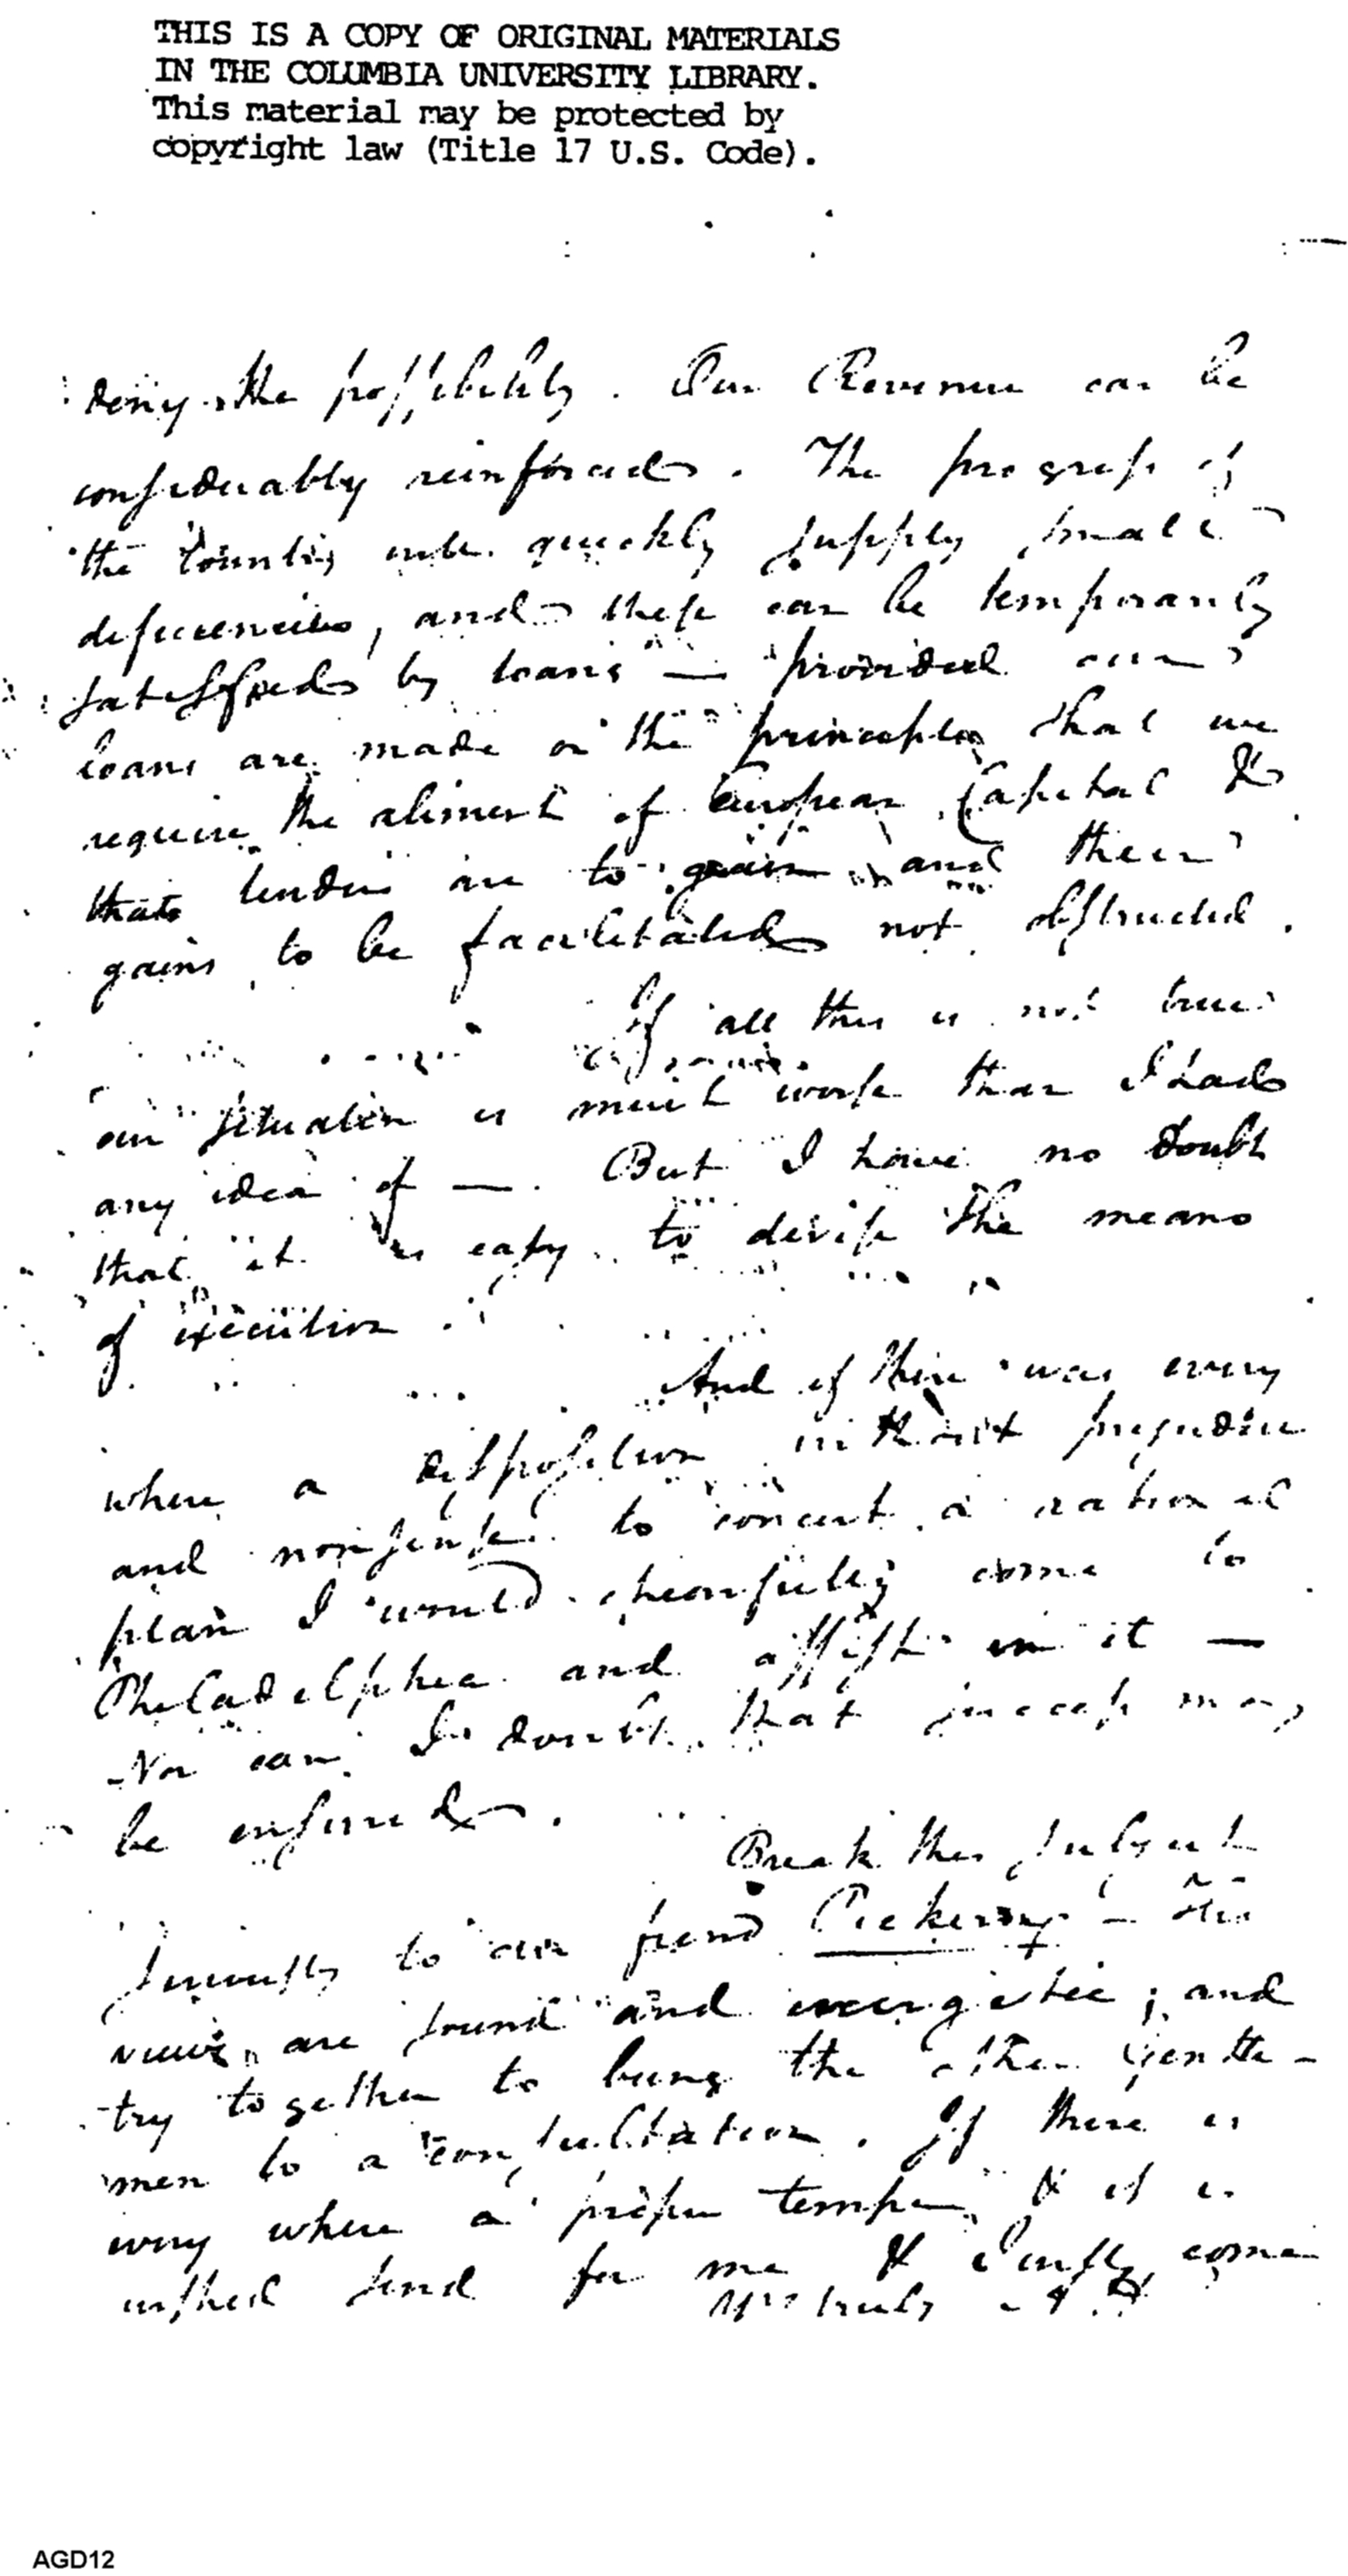 THIS IS A COPY OF ORIGINAL MATERIALS
IN THE COLUMBIA UNIVERSITY LIBRARY.
This material may be protected by
copyright law (Title 17 U.S. Code).
deny the possibility. Our Revenue can be
considerably reinforced. The progress of
the Country will quickly supply small
deficiencies, and these can be temporarily
satisfied by loans — provided our
loans are made on the principle that we
require the aliment of European Capital &
that lenders are to gain and their
gains to be facilitated not obstructed.
If all this is not true
our situation is much worse than I had
any idea of —. But I have no doubt
that it is easy to devise the means
of execution.
And if there was every
where a disposition without prejudice
and nonsense to concert a rational
plan I would chearfully come to
Philadelphia and assist in it —
Nor can I doubt that success may
be insured.
Break this subject
seriously to our friend Pickering — His
views are sound and energetic; and
try together to bring the other Gentle-
men to a consultation. If there is
every where a proper temper & it is
wished send for me & I will come
Yrs truly A H
AGD12